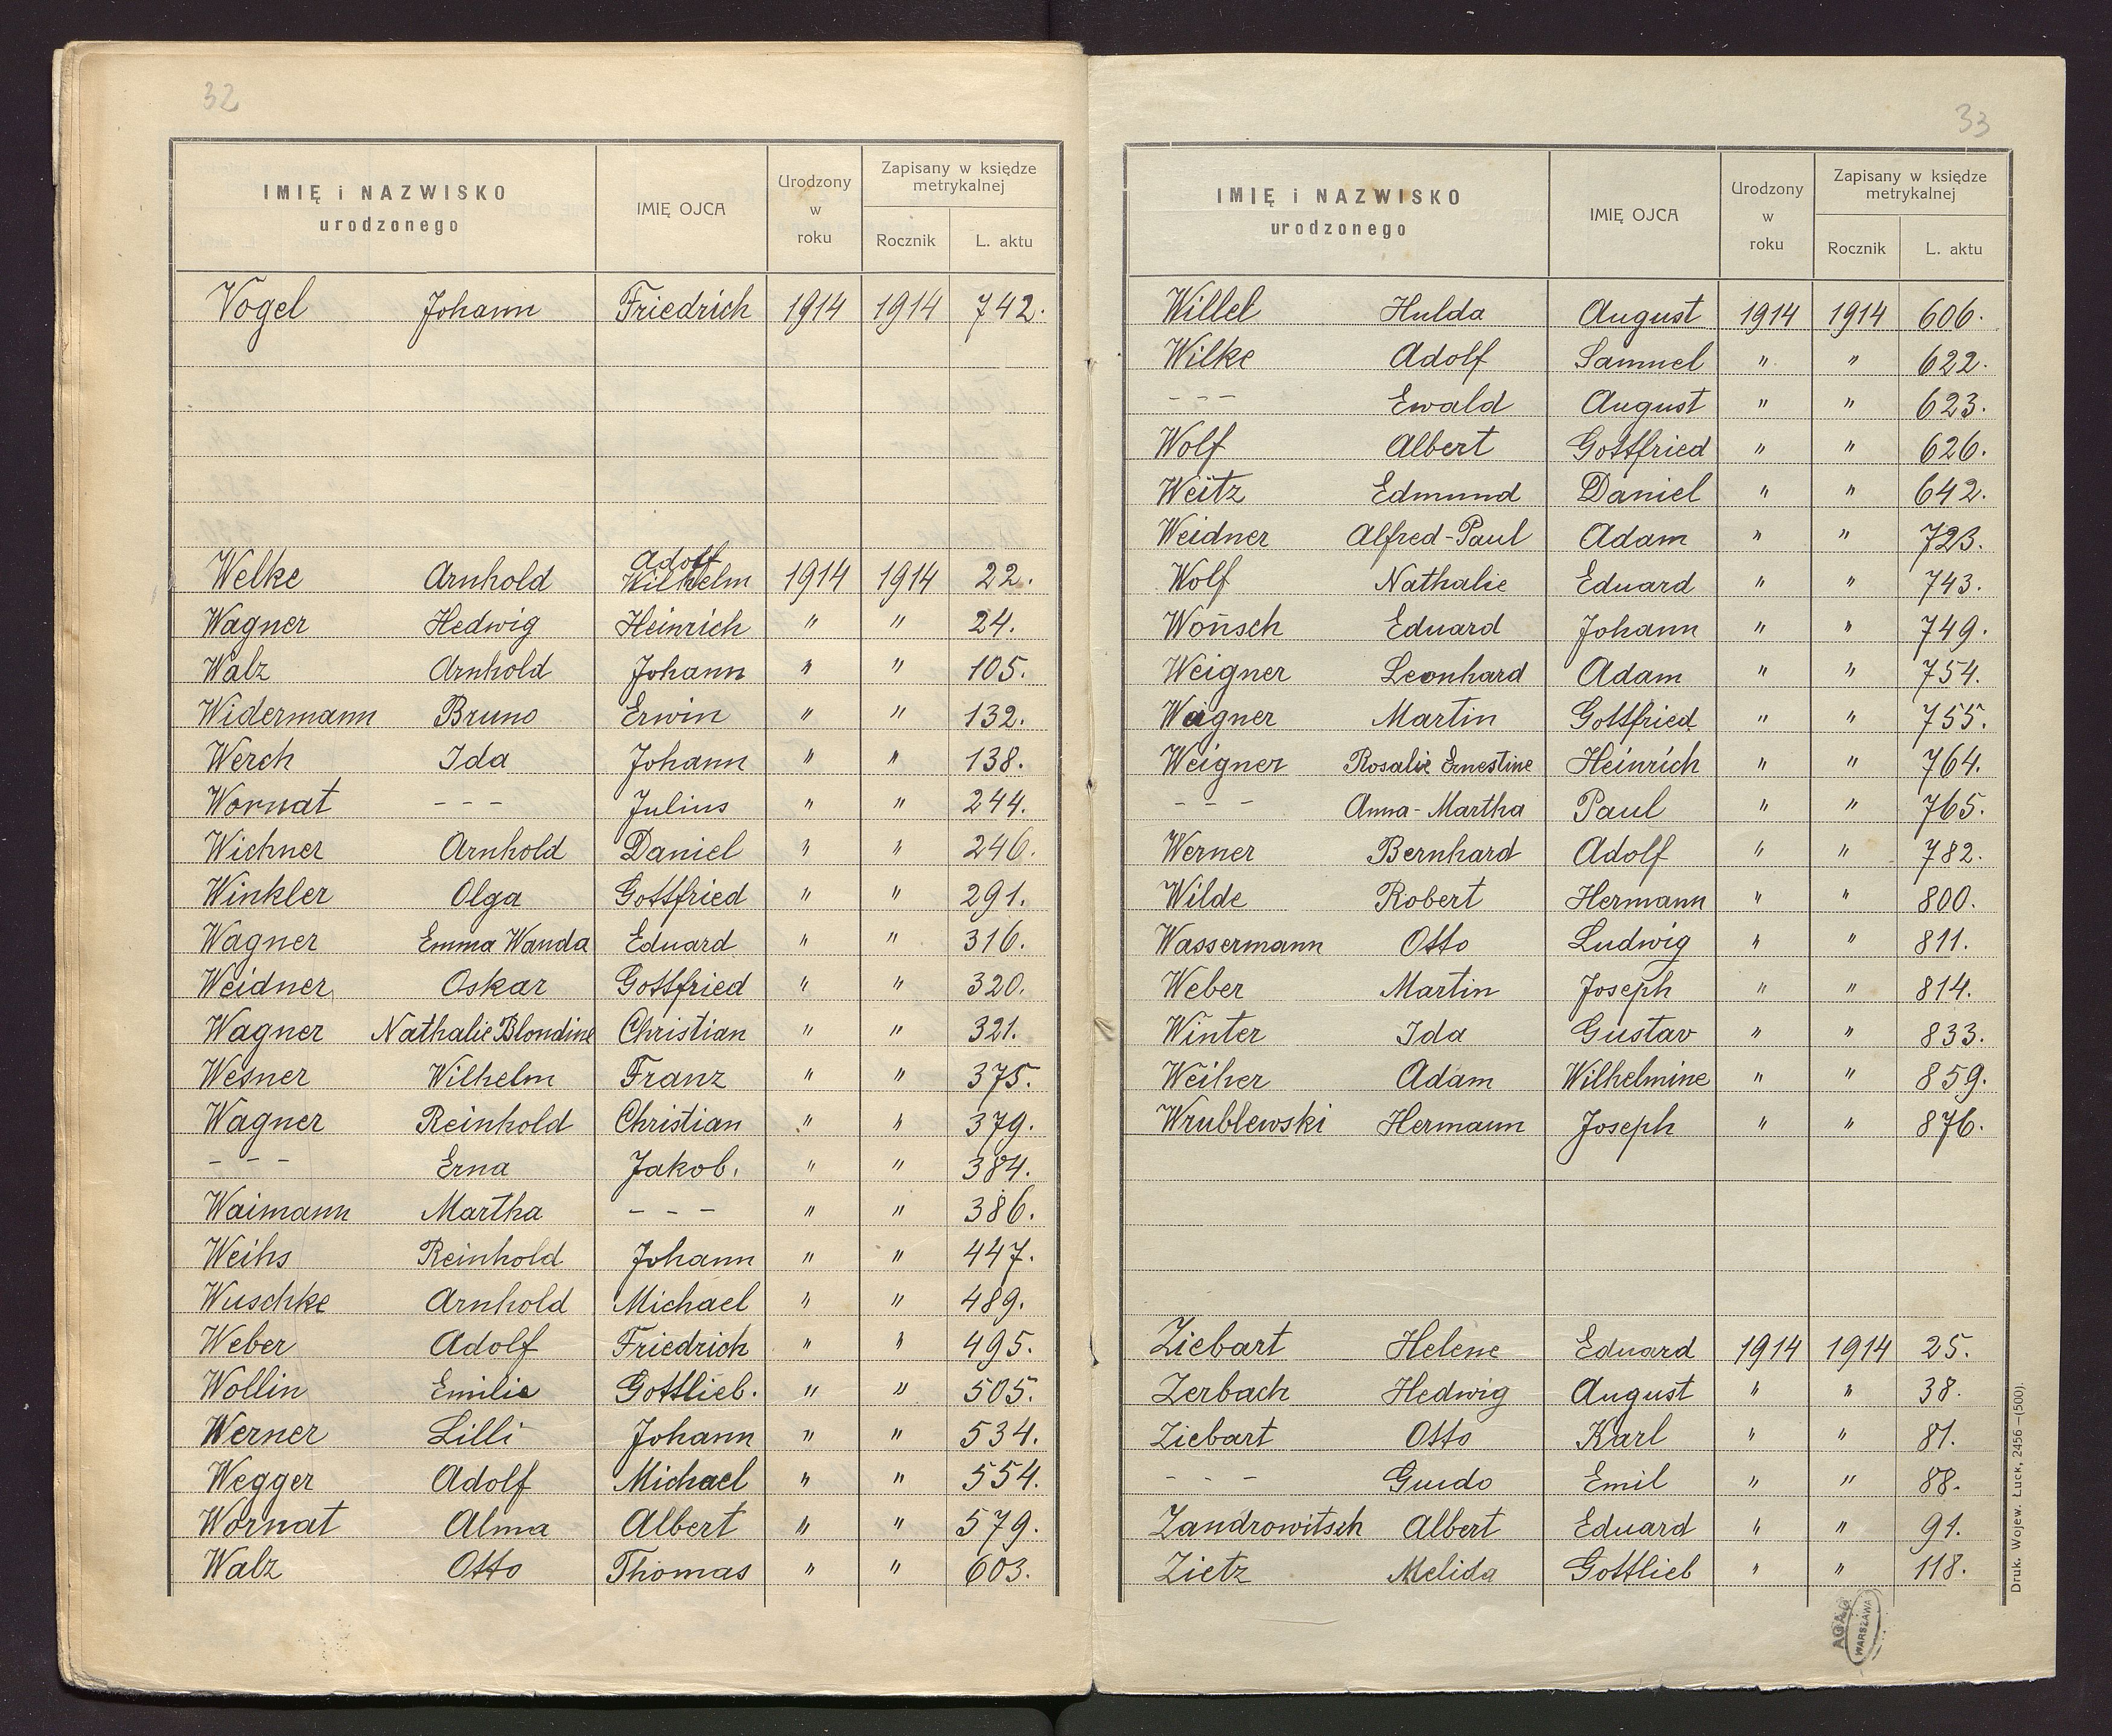 32
IMIĘ i NAZWISKO urodzonego IMIĘ OJCA Urodzony w roku Zapisany w księdze metrykalnej Rocznik L. aktu
Vogel Johann Friedrich 1914 1914 742.
Adolf
Welke Arnhold Wilhelm 1914 1914 22.
Wagner Hedwig Heinrich " " 24.
Walz Arnhold Johann " " 105.
Widermann Bruno Erwin " " 132.
Werch Ida Johann " " 138.
Wornat - - - Julius " " 244.
Wichner Arnhold Daniel " " 246.
Winkler Olga Gottfried " " 291.
Wagner Emma Wanda Eduard " " 316.
Weidner Oskar Gottfried " " 320.
Wagner Nathalie Blondine Christian " " 321.
Wesner Wilhelm Franz " " 375.
Wagner Reinhold Christian " " 379.
- - - Erna Jakob. " " 384.
Waimann Martha - - - " " 386.
Weihs Reinhold Johann " " 447.
Wuschke Arnhold Michael " " 489.
Weber Adolf Friedrich " " 495.
Wollin Emilie Gottlieb. " " 505.
Werner Lilli Johann " " 534.
Wegger Adolf Michael " " 554.
Wornat Alma Albert " " 579.
Walz Otto Thomas " " 603.
33
IMIĘ i NAZWISKO urodzonego IMIĘ OJCA Urodzony w roku Zapisany w księdze metrykalnej Rocznik L. aktu
Willel Hulda August 1914 1914 606.
Wilke Adolf Samuel " " 622.
- - - Ewald August " " 623.
Wolf Albert Gottfried " " 626.
Weitz Edmund Daniel " " 642.
Weidner Alfred-Paul Adam " " 723.
Wolf Nathalie Eduard " " 743.
Wonsch Eduard Johann " " 749.
Weigner Leonhard Adam " " 754.
Wagner Martin Gottfried " " 755.
Weigner Rosalie Ernestine Heinrich " " 764.
- - - Anna-Martha Paul " " 765.
Werner Bernhard Adolf " " 782.
Wilde Robert Hermann " " 800.
Wassermann Otto Ludwig " " 811.
Weber Martin Joseph " " 814.
Winter Ida Gustav " " 833.
Weiher Adam Wilhelmine " " 859.
Wrublewski Hermann Joseph " " 876.
Ziebart Helene Eduard 1914 1914 25.
Zerbach Hedwig August " " 38.
Ziebart Otto Karl " " 81.
- - - Guido Emil " " 88.
Zandrowitsch Albert Eduard " " 91.
Zietz Melida Gottlieb " " 118.
Druk. Wojew. Łuck, 2456—(500).
AGAD
WARSZAWA